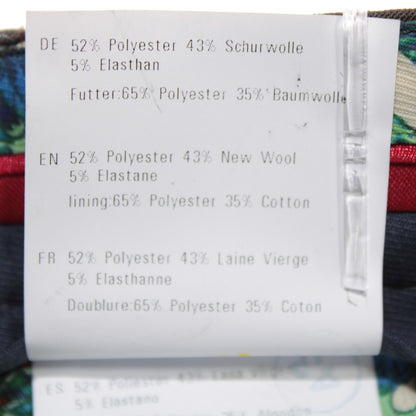 DE 52% Polyester 43% Schurwolle
5% Elasthan
Futter:65% Polyester 35% Baumwolle
EN 52% Polyester 43% New Wool
5% Elastane
lining:65% Polyester 35% Cotton
FR 52% Polyester 43% Laine Vierge
5% Elasthanne
Doublure:65% Polyester 35% Coton
ES 52% Polyester 43% Lana
5% Elastano